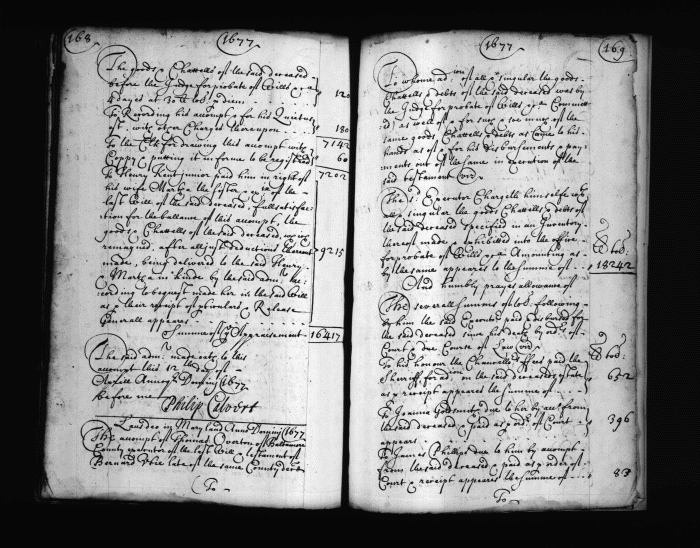 168
1677
The goods & Chattells of the said deceased
before the Judge for probate of Wills &
4 dayes at 30 lb tob. p diem
120
To Recording his accompt & for his Quietus
est, with other Charges thereupon
180
7142
To the Clk for drawing this accompt with
Coppy & putting it in forme to be registred
60
7202
To Henry Kent junior paid him in right of
his wife Martha the
last Will of the said deceased, full satisfac-
tion for the ballance of this accompt, the
goods & Chattells of the said deceased,
remayned, after all just deductions thereout
9215
made, being delivered to the said Henry
& Martha in kinde by the said adm ac-
cording to bequest made her in the said Will
as p their receipt & Release
Generall appears
Summe of ye Appraisement
16417
The said adm made oath to this
accompt this 12th day of
Annoq Domini 1677
before me
Philip Calvert
Maryland Anno Domini 1677
The accompt of Thomas Overton of Baltemore
County executor of the last Will & testament of
Bernard late of the same County deced
To
1677
169
To whome ad con of all & singular the goods
Chattells & debts of the said deceased was by
the Judge for probate of Wills & Committ
ed as well of & for such & soe much of the
same goods Chattells & debts as Came to his
hands as of & for his disbursements & pay
ments out of the same in execution of the
said testament (vizt)
The sd Executor Chargeth himselfe with
all & singular the goods Chattells & debts of
the said deceased specified in an Inventory
thereof made & exhibited into the office
for probate of Wills & Amounting as
by the same appeares to the Summe of
lb tob:
18242
And humbly prayes allowance of
The severall Summes of tob. following
by him the said Executor paid & disbursed for
the said deceased since his death by order of
Court & due Course of Law (vizt)
lb tob:
To his honour the Chancellor & fees paid the
Sherriff, for ad con on the said deceaseds estate
as p receipt appears the Summe of
632
To Joanna Goldsmith due to her by acct from
the said deceased & paid as p order of Court
appears
396
To James Phillips due to him by accompt
from the said deceased & paid as p order of
Court & receipt appeares the Summe of
83
To